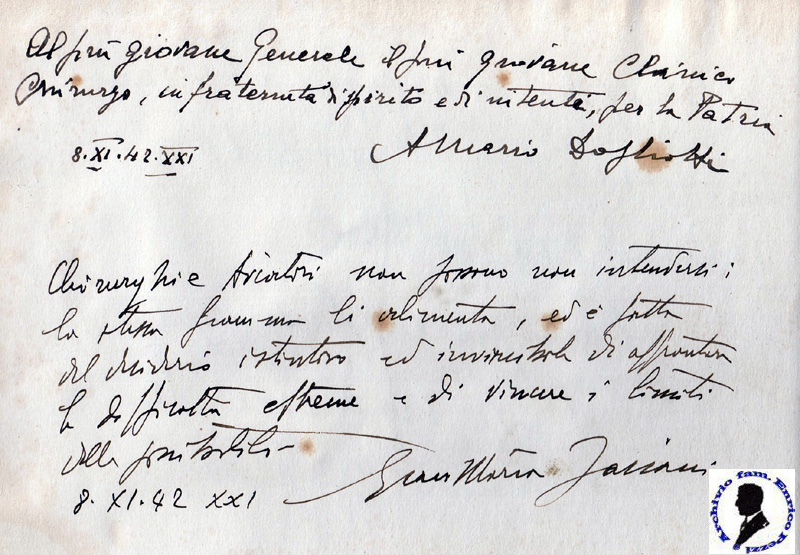 Al più giovane Generale il più giovane Clinico
Chirurgo, in fraternità di spirito e di intenti, per la Patria
8.XI.42.XXI
A Mario Dogliotti
Chirurghi e Aviatori non possono non intendersi;
la stessa fiamma li alimenta, ed è fatta
del desiderio istintivo ed invincibile di affrontare
le difficoltà estreme e di vincere i limiti
della possibilità
8. XI. 42 XXI
Gian Maria
Archivio fam. Enrico Pezzi